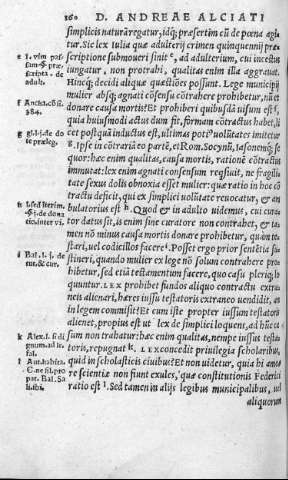 160 D. ANDREAE ALCIATI
simplicis naturā regatur, idq; præsertim cū de pœna agi
tur. Sic lex iulia quæ adulterij crimen quinquennij præ
scriptione submoueri sinit e, ad adulterium, cui incestus
iungatur, non protrahi, qualitas enim illa aggrauat.
Hincq; decidi aliquæ quæstiōes possunt. Lege municipij
mulier absq; agnati cōsensu cōtrahere prohibetur, nū et
donare causa mortis? Et prohiberi quibusdā uisum est f,
quia huiusmodi actus dum fit, formam cōtractus habet, li
cet postquā inductus est, ultimas potiꝰ uolūtates imitetur
g. Ipse in cōtrariā eo parte, et Rom. Socynū, Iasonemq; se
quor: hæc enim qualitas, causa mortis, rationē cōtractus
immutat: lex enim agnati consensum reqsiuit, ne fragili
tate sexus dolis obnoxia esset mulier: quæ ratio in hoc cō
tractu deficit, qui ex simplici uolūtate reuocatur, & am
bulatorius est h. Quod & in adulto uidemus, cui cura
tor datus sit, is enim sine curatore non contrahet, & ta
men nō minus causa mortis donare prohibetur, quàm te
stari, uel codicillos facere i. Posset ergo prior sentētia su
stineri, quando mulier ex lege nō solum contrahere pro
hibetur, sed etiā testamentum facere, quo casu pleriq; lo
quuntur. LEX prohibet fundos aliquo contractu extra
neis alienari, hæres iussu testatoris extraneo uendidit, an
in legem commisit? Et cum iste propter iussum testatoris
alienet, propius est ut lex de simplici loquens, ad hūc ca
sum non trahatur: hæc enim qualitas, nempe iussus testa
toris, repugnat k. LEX concedit priuilegia scholaribus,
quid in scholasticis ciuibus? Et non uidetur, quia hi amo
re scientiæ non fiunt exules, quæ constitutionis Federici
ratio est l. Sed tamen in alijs legibus municipalibus, uel
aliquorum
e l. vim pas
f Ancha. cōsil.
384.
g
te præleg.
h
i Bal. l. j. de
tut. & cur.
k Alex. l. si di
gnum. ad l. fal.
l